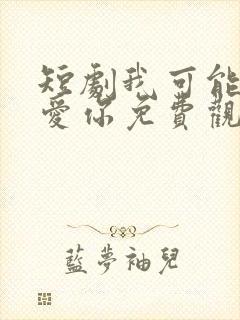 短劇我可能
愛你免費觀
藍夢袖兒